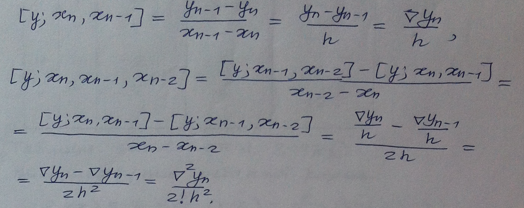 [y; xₙ, xₙ₋₁] = (yₙ₋₁ − yₙ)/(xₙ₋₁ − xₙ) = (yₙ − yₙ₋₁)/h = ∇yₙ/h,
[y; xₙ, xₙ₋₁, xₙ₋₂] = ([y; xₙ₋₁, xₙ₋₂] − [y; xₙ, xₙ₋₁])/(xₙ₋₂ − xₙ) =
= ([y; xₙ, xₙ₋₁] − [y; xₙ₋₁, xₙ₋₂])/(xₙ − xₙ₋₂) = (∇yₙ/h − ∇yₙ₋₁/h)/(2h) =
= (∇yₙ − ∇yₙ₋₁)/(2h²) = ∇²yₙ/(2!h²).